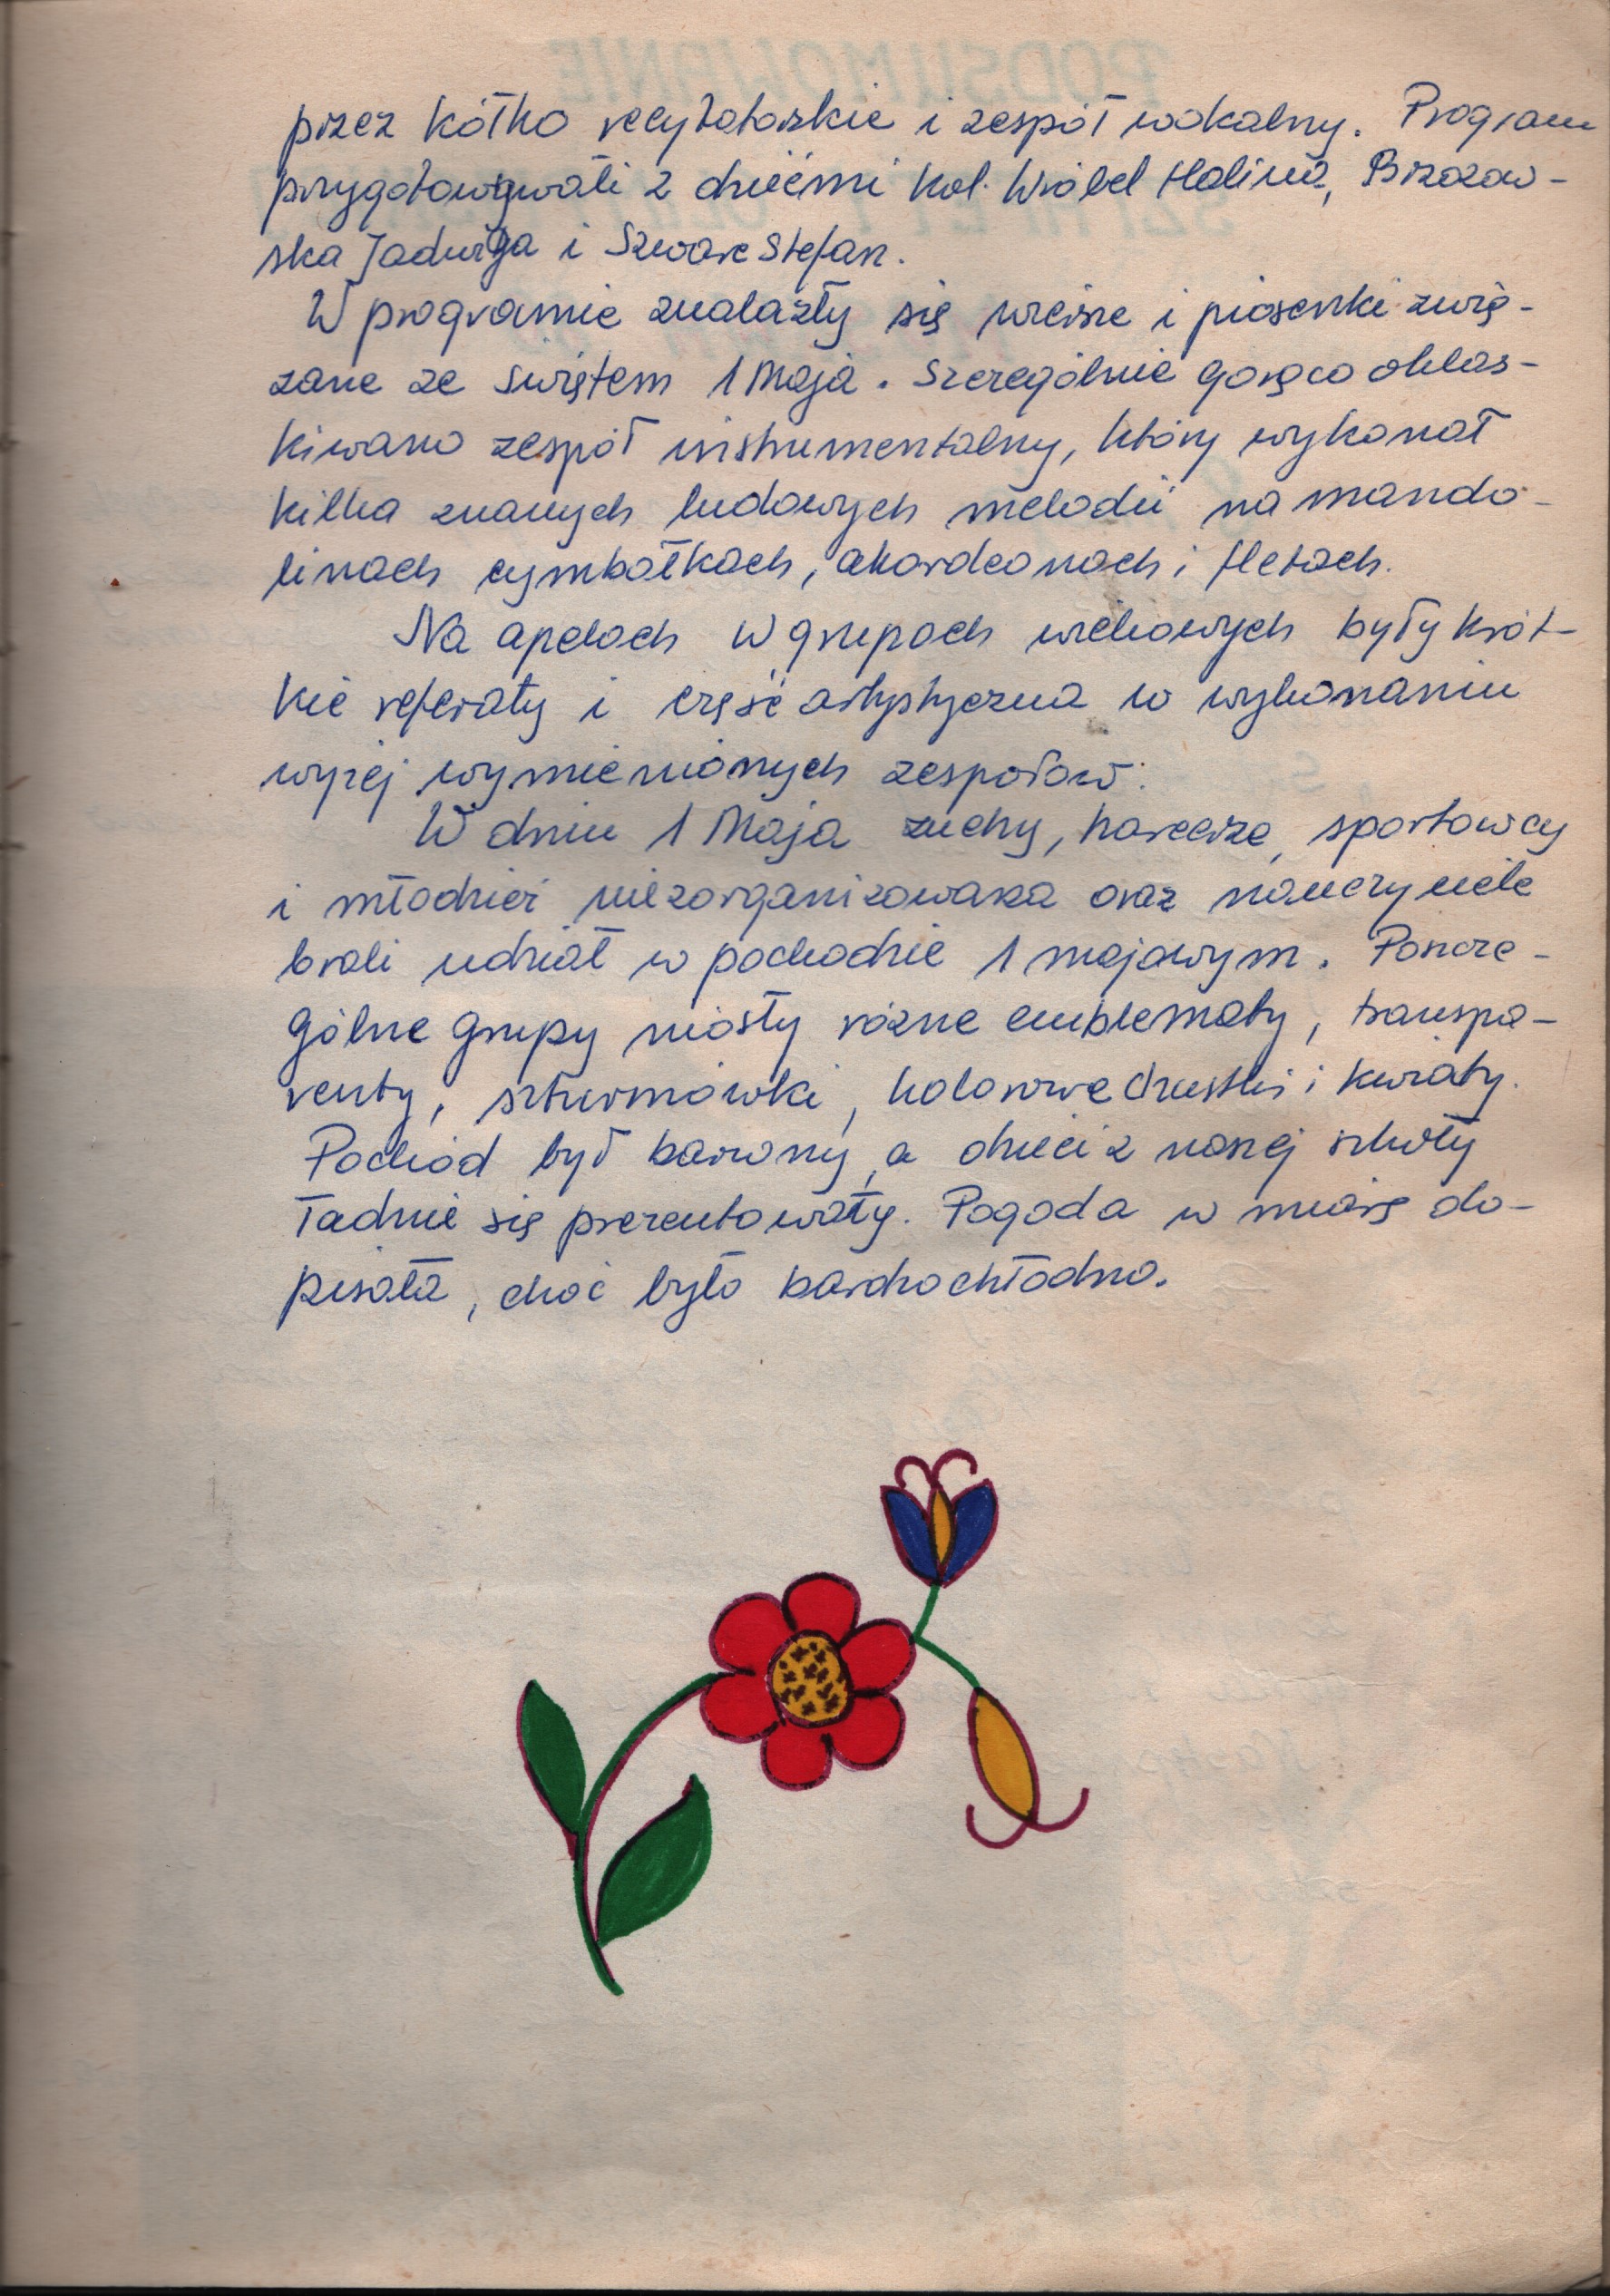 przez kółko recytatorskie i zespół wokalny. Program
przygotowywali z dziećmi kol. Wróbel Halina, Brzozow-
ska Jadwiga i Szwarc Stefan.
W programie znalazły się wiersze i piosenki zwią-
zane ze świętem 1 Maja. Szczególnie gorąco oklas-
kiwano zespół instrumentalny, który wykonał
kilka znanych ludowych melodii na mando-
linach cymbałkach, akordeonach i fletach.
Na apelach w grupach wiekowych były krót-
kie referaty i część artystyczna w wykonaniu
wyżej wymienionych zespołów.
W dniu 1 Maja zuchy, harcerze, sportowcy
i młodzież niezorganizowana oraz nauczyciele
brali udział w pochodzie 1 majowym. Poszcze-
gólne grupy niosły różne emblematy, transpa-
renty, szturmówki, kolorowe chustki i kwiaty.
Pochód był barwny, a dzieci z naszej szkoły
ładnie się prezentowały. Pogoda w miarę do-
pisała, choć było bardzo chłodno.